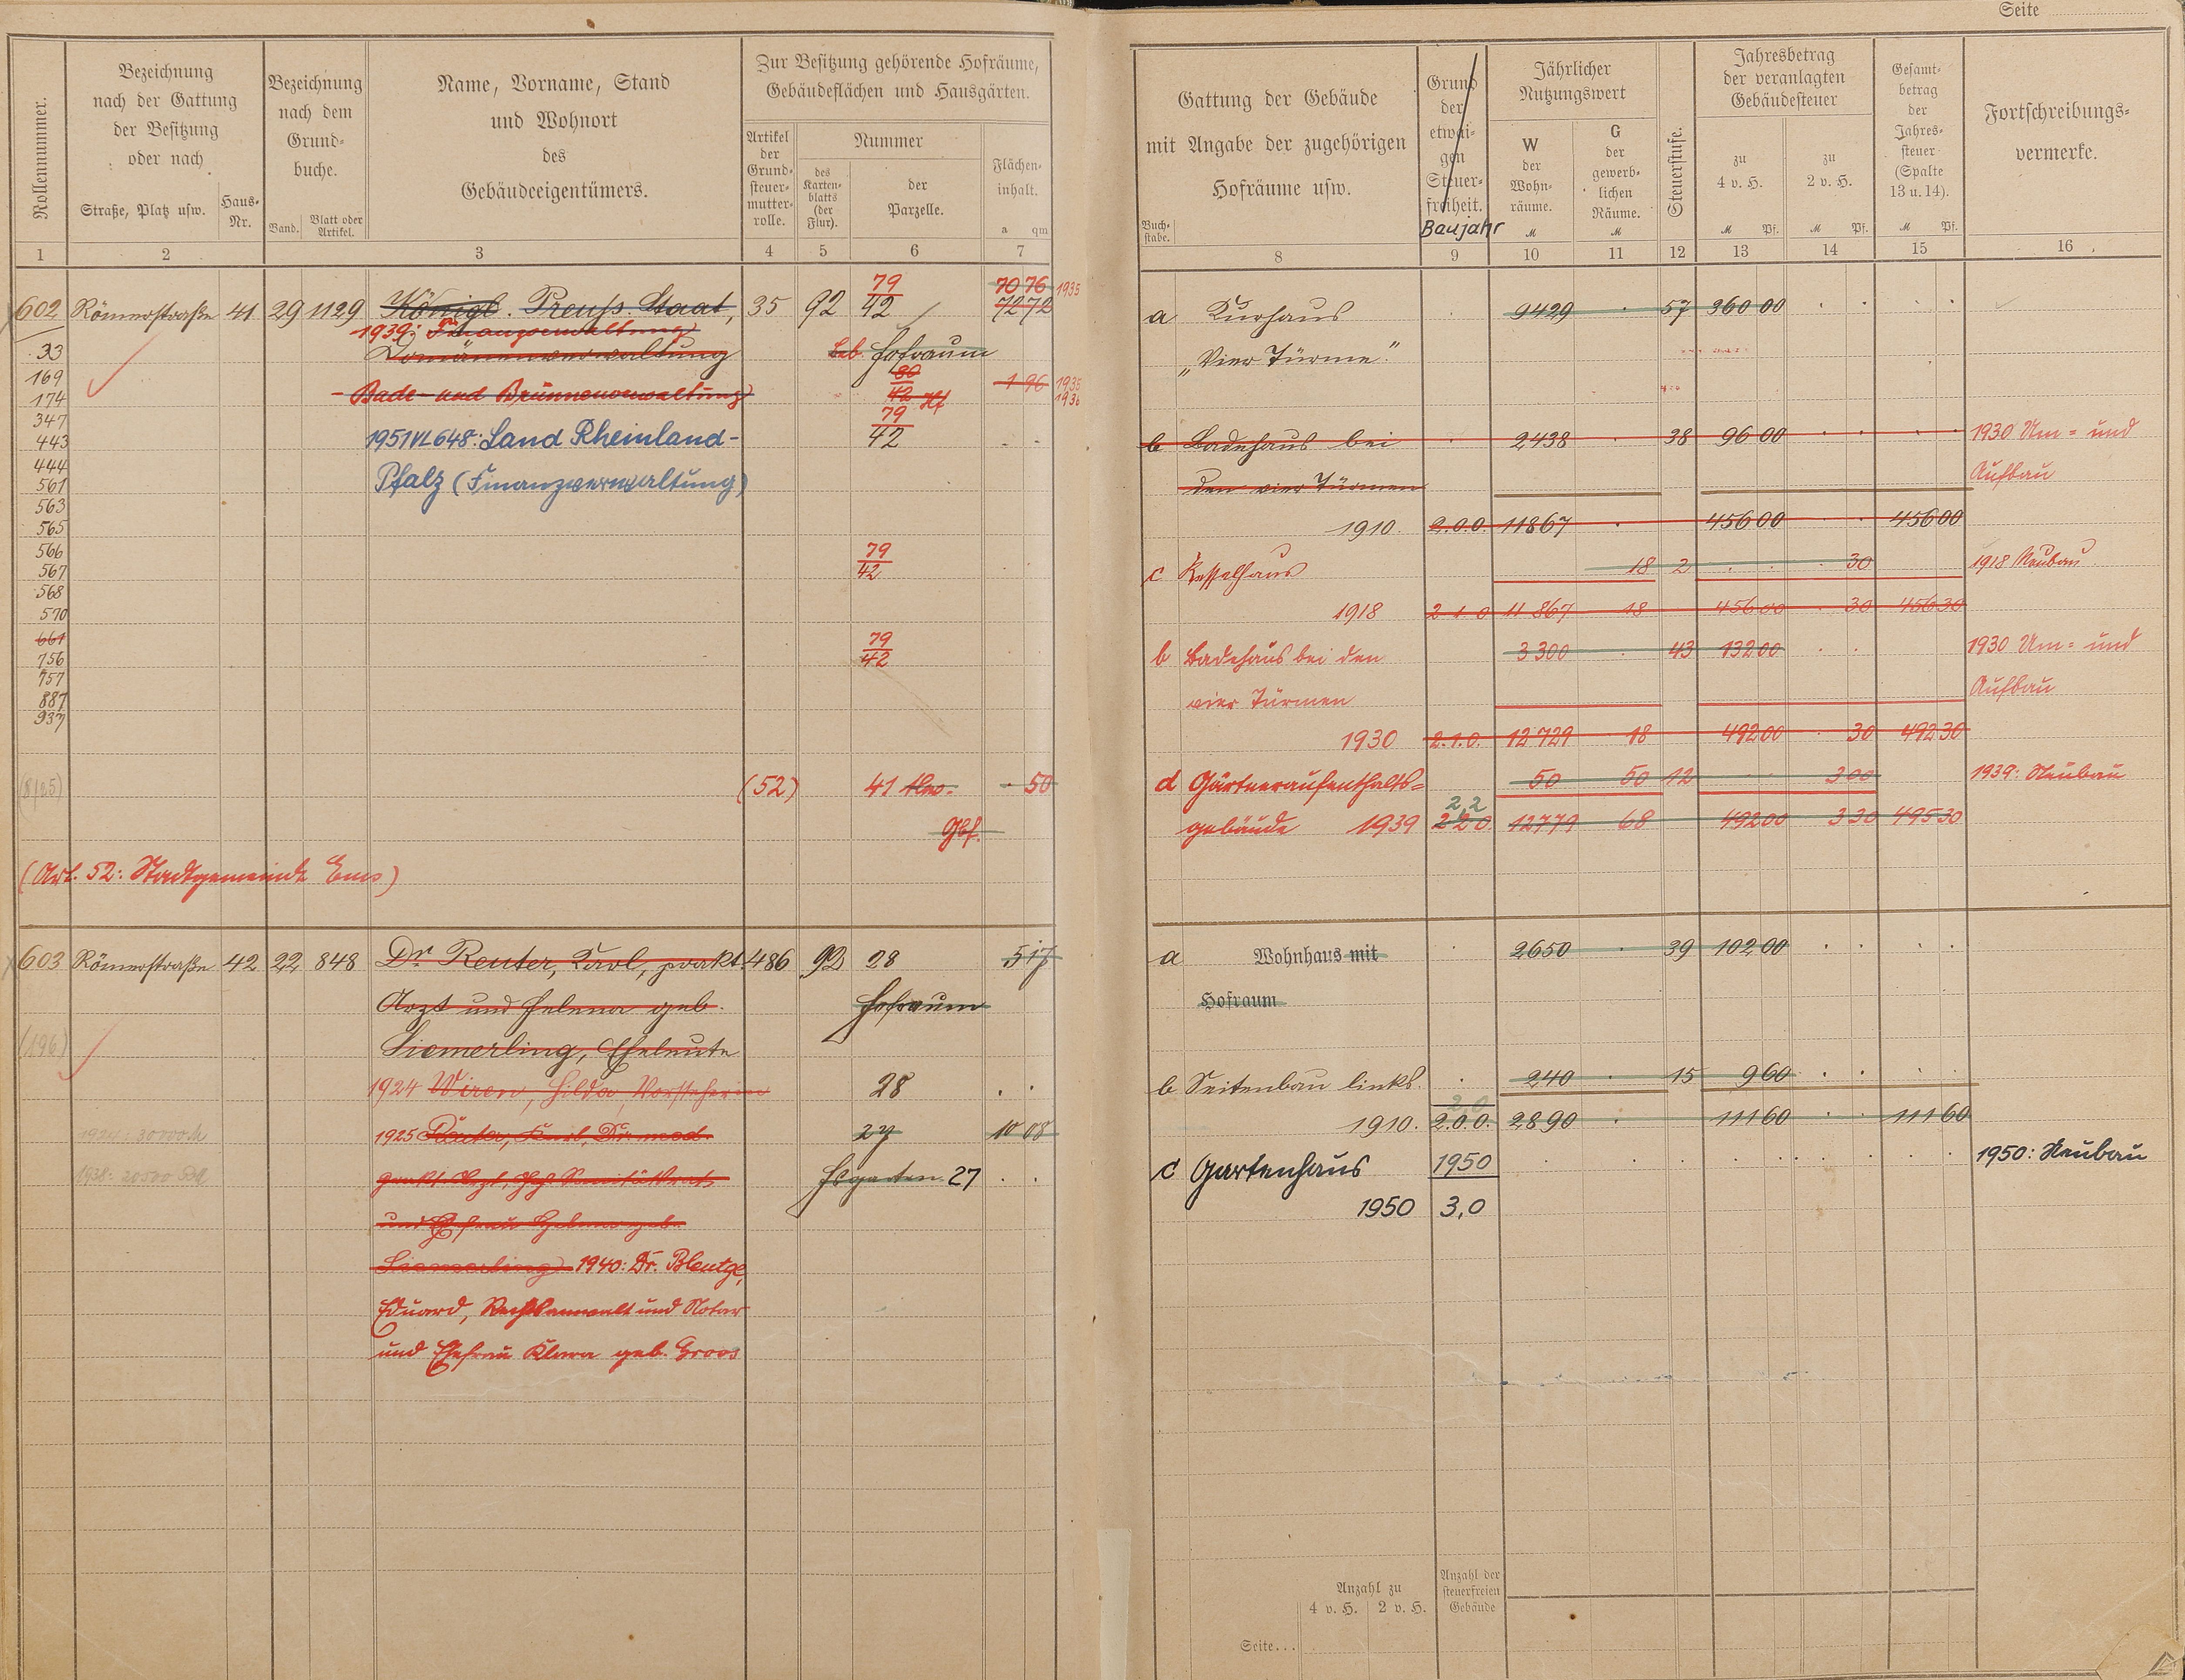 Seite
Rollennummer.
Bezeichnung
nach der Gattung
der Besitzung
oder nach
Straße, Platz usw.
Haus-
Nr.
Bezeichnung
nach dem
Grund-
buche.
Band.
Blatt oder
Artikel.
Name, Vorname, Stand
und Wohnort
des
Gebäudeeigentümers.
Zur Besitzung gehörende Hofräume,
Gebäudeflächen und Hausgärten.
Artikel
der
Grund-
steuer-
mutter-
rolle.
Nummer
des
Karten-
blatts
(der
Flur).
der
Parzelle.
Flächen-
inhalt.
a qm
1 2 3 4 5 6 7
602 Römerstraße 41 29 1129 Königl. Preuß. Staat, 35 92 79/42 7076 1935
7272
1939: Finanzverwaltung
Domänenverwaltung
Geb. Hofraum
Bade- und Brunnenverwaltung
80/42 Hf 196 1935
1936
1951 VL 648: Land Rheinland-
79/42
Pfalz (Finanzverwaltung)
33
169
174
347
443
444
561
563
565
566
567
568
570
661
756
757
887
937
79/42
79/42
(8/25)
(52) 41 50
Gbf.
(Art. 52: Stadtgemeinde Ems)
603 Römerstraße 42 22 848 Dr. Reuter, Karl, prakt. 486 92 28 517
Arzt und Helena geb. Hofraum
Siemerling, Eheleute
(196)
1924 Wiren, Hilda, Vorsteherin 28
1925 Reuter, Karl, Dr. med. 27 10 08
prakt. Arzt, Geh. Sanitätsrat, Hsgarten 27
und Ehefrau Helene geb.
Siemerling 1940: Dr. Bleutge,
Eduard, Rechtsanwalt und Notar
und Ehefrau Klara geb. Groos
1924: 30000 M
1938: 20500 RM
Gattung der Gebäude
mit Angabe der zugehörigen
Hofräume usw.
Buch-
stabe.
Grund
der
etwai-
gen
Steuer-
freiheit.
Baujahr
Jährlicher
Nutzungswert
W
der
Wohn-
räume.
M
G
der
gewerb-
lichen
Räume.
M
Steuerstufe.
Jahresbetrag
der veranlagten
Gebäudesteuer
zu
4 v. H.
M Pf.
zu
2 v. H.
M Pf.
Gesamt-
betrag
der
Jahres-
steuer
(Spalte
13 u. 14).
M Pf.
Fortschreibungs-
vermerke.
8 9 10 11 12 13 14 15 16
a Kurhaus 9429 57 360 00
„Vier Türme".
b Badehaus bei 2438 38 96 00 1930 Um- und
den vier Türmen Aufbau
1910. 2.0.0. 11867 456 00 456 00
c Kesselhaus 18 2 30 1918 Neubau
1918 2 1 0 11 867 18 456 00 30 456 30
b Badehaus bei den 3300 43 132 00 1930 Um- und
vier Türmen Aufbau
1930 2.1.0. 12 729 18 492 00 30 492 30
d Gärtneraufenthalts- 50 50 12 3 00 1939: Neubau
2,2
gebäude 1939 2 2 0 12779 68 492 00 3 30 495 30
a Wohnhaus mit 2650 39 102 00
Hofraum
b Seitenbau links. 240 15 9 60
2,0
1910. 2.0.0. 2890 111 60 111 60
c Gartenhaus 1950 1950: Neubau
1950 3,0
Anzahl zu
4 v. H. 2 v. H.
Anzahl der
steuerfreien
Gebäude
Seite...